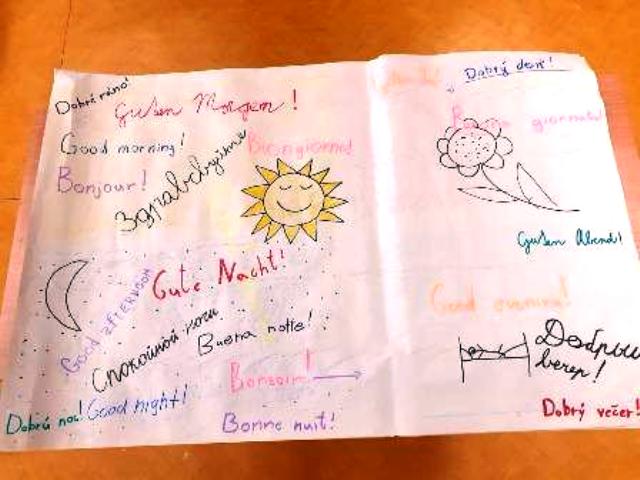 Dobré ráno!
Guten Morgen!
Good morning!
Bonjour!
Здравствуйте
Buongiorno!
Gute Nacht!
Good AFTERNOON
Спокойной ночи
Buona notte!
Bonsoir!
Dobrú noc!
Good night!
Bonne nuit!
Dobrý deň!
giornata!
Guten Abend!
Good evening!
Добрый
вечер!
Dobrý večer!